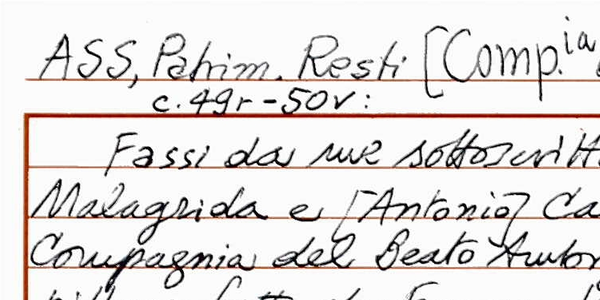 ASS, Patrim. Resti [Comp.ia
c. 49r-50v:
Fassi da me sottoscritt
Malagrida e [Antonio] Ca
Compagnia del Beato Ambr